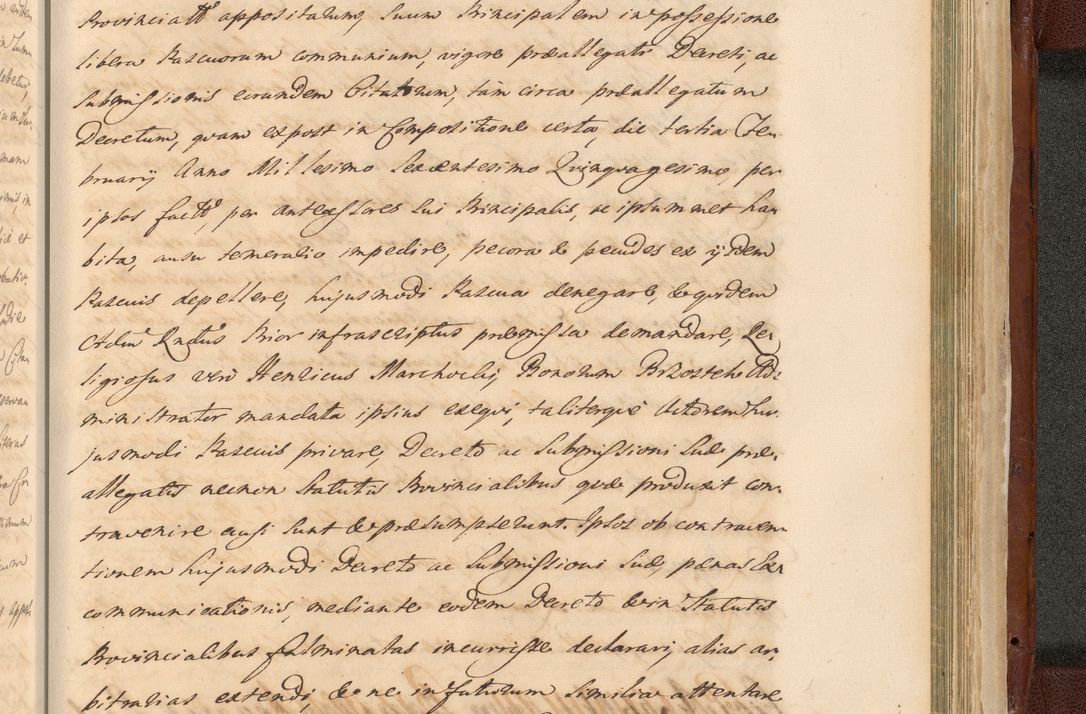 Provinciattt appositarum, suum Principalem in possessione
libera Pascuorum communium, vigore præallegati Decreti, ac
submissionis eorundem Citatorum, tàm circa præallegatum
Decretum, quam ex post in compositione certa, die tertia Fe-
bruarij Anno Millesimo Sexcentesimo Quinquagesimo, per
ipsos factt, per antecessores sui Principalis, ac ipsummet ha-
bita, ausu temerario impedire, pecora & pecudes ex ijsdem
Pascuis depellere, hujusmodi Pascua denegare, & quidem
Adm Rndus Prior infrascriptus præmissa demandare, Re-
ligiosus verò Henricus Marchocki, Bonorum Brzostek Ad-
ministrator mandata ipsius exequi, taliterque Actorem hu-
jusmodi Pascuis privare, Decreto ac Submissioni suæ præ-
allegatis necnon Statutis Provincialibus quæ produxit con-
travenire ausi sunt & præsumpserunt. Ipsos ob contraven-
tionem hujusmodi Decreto ac Submissioni suæ, pænas Ex-
communicationis, mediante eodem Decreto & in Statutis
Provincialibus fulminatas incurrisse declarari, alias ar-
bitrarias extendi, & ne in futurum similia attentare